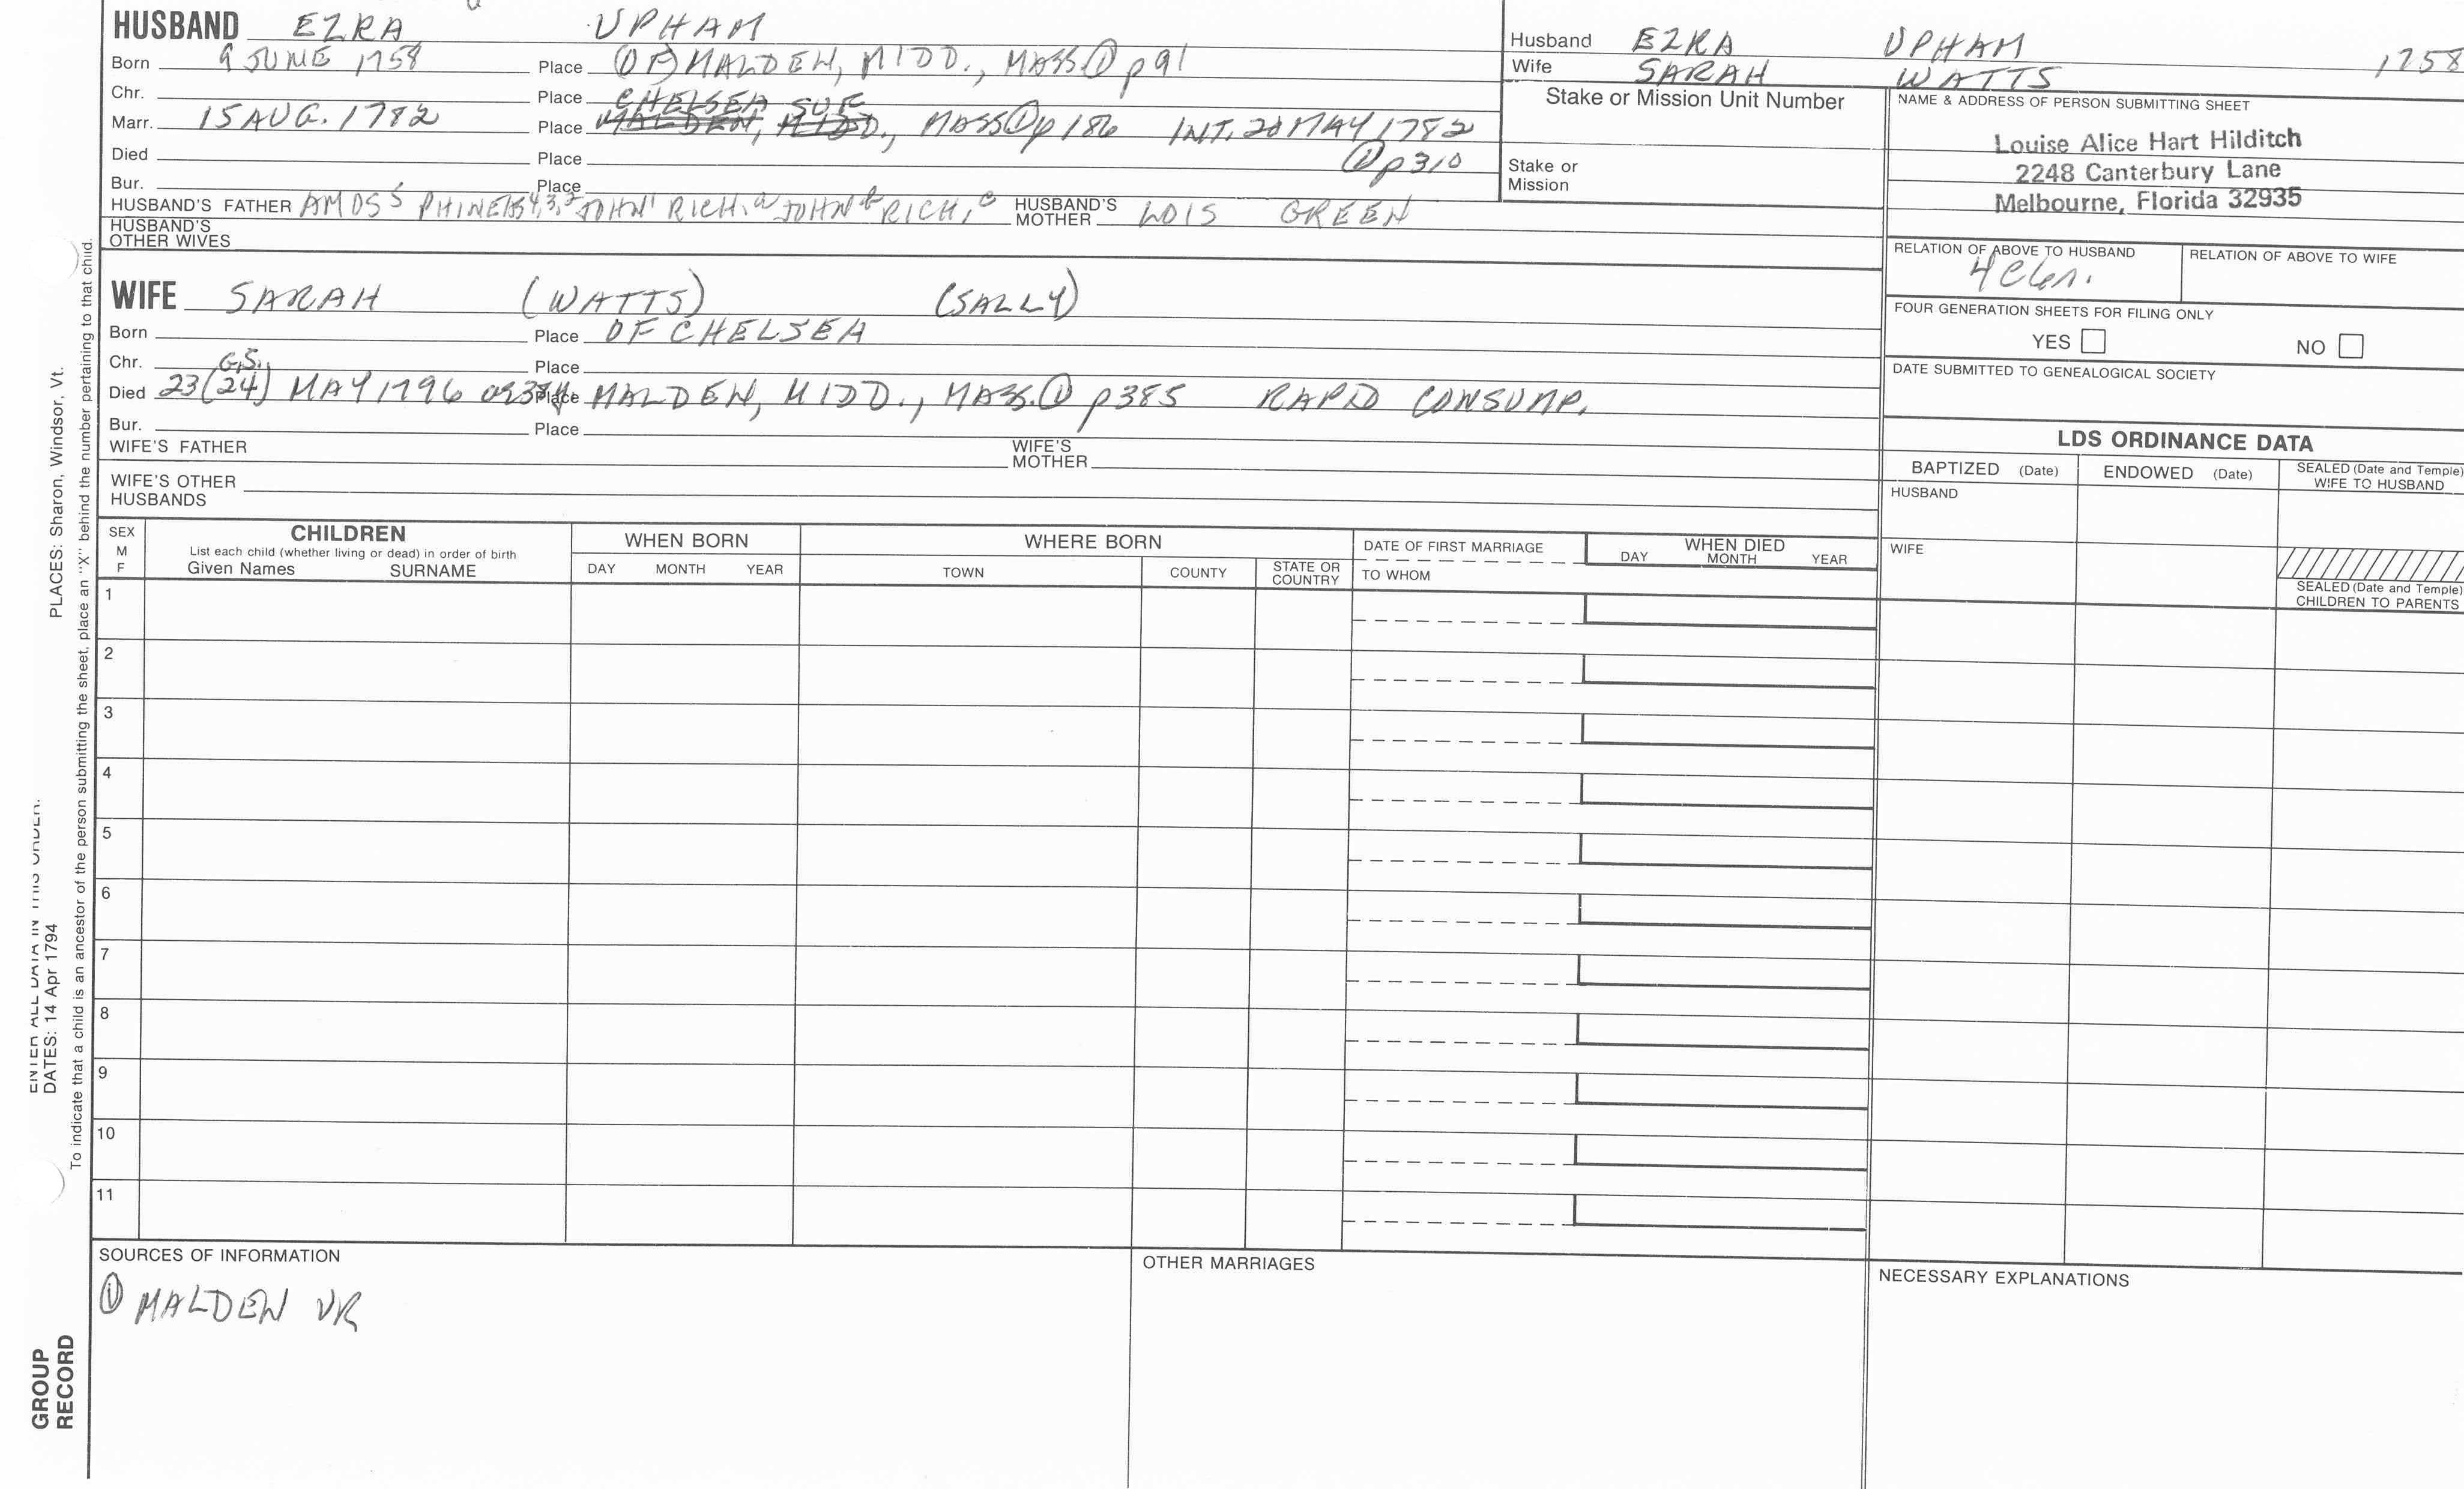 HUSBAND EZRA UPHAM
Born 9 JUNE 1758 Place (OF) MALDEN, MIDD., MASS ① p 91
Chr. Place CHELSEA SUF
Marr. 15 AUG. 1782 Place MALDEN, MIDD., MASS ① p 186 INT. 20 MAY 1782
Died Place ① p 310
Bur. Place
HUSBAND'S FATHER AMOS5 PHINEAS4,3,2 JOHN1 RICH.a JOHNb RICH.c HUSBAND'S MOTHER LOIS GREEN
HUSBAND'S OTHER WIVES
Husband EZRA UPHAM 1758
Wife SARAH WATTS
Stake or Mission Unit Number
Stake or Mission
NAME & ADDRESS OF PERSON SUBMITTING SHEET
Louise Alice Hart Hilditch
2248 Canterbury Lane
Melbourne, Florida 32935
RELATION OF ABOVE TO HUSBAND
RELATION OF ABOVE TO WIFE
FOUR GENERATION SHEETS FOR FILING ONLY
YES NO
DATE SUBMITTED TO GENEALOGICAL SOCIETY
WIFE SARAH (WATTS) (SALLY)
Born Place OF CHELSEA
Chr. G.S. Place
Died 23(24) MAY 1796 Place MALDEN, MIDD., MASS. ① p 385 RAPID CONSUMP.
Bur. Place
WIFE'S FATHER WIFE'S MOTHER
WIFE'S OTHER HUSBANDS
LDS ORDINANCE DATA
BAPTIZED (Date) ENDOWED (Date) SEALED (Date and Temple) WIFE TO HUSBAND
HUSBAND
WIFE
SEALED (Date and Temple) CHILDREN TO PARENTS
SEX M F
CHILDREN
List each child (whether living or dead) in order of birth
Given Names SURNAME
WHEN BORN
DAY MONTH YEAR
WHERE BORN
TOWN COUNTY STATE OR COUNTRY
DATE OF FIRST MARRIAGE
TO WHOM
WHEN DIED
DAY MONTH YEAR
1
2
3
4
5
6
7
8
9
10
11
SOURCES OF INFORMATION
① MALDEN VR
OTHER MARRIAGES
NECESSARY EXPLANATIONS
ENTER ALL DATA IN THIS ORDER:
DATES: 14 Apr 1794 PLACES: Sharon, Windsor, Vt.
To indicate that a child is an ancestor of the person submitting the sheet, place an "X" behind the number pertaining to that child.
GROUP
RECORD